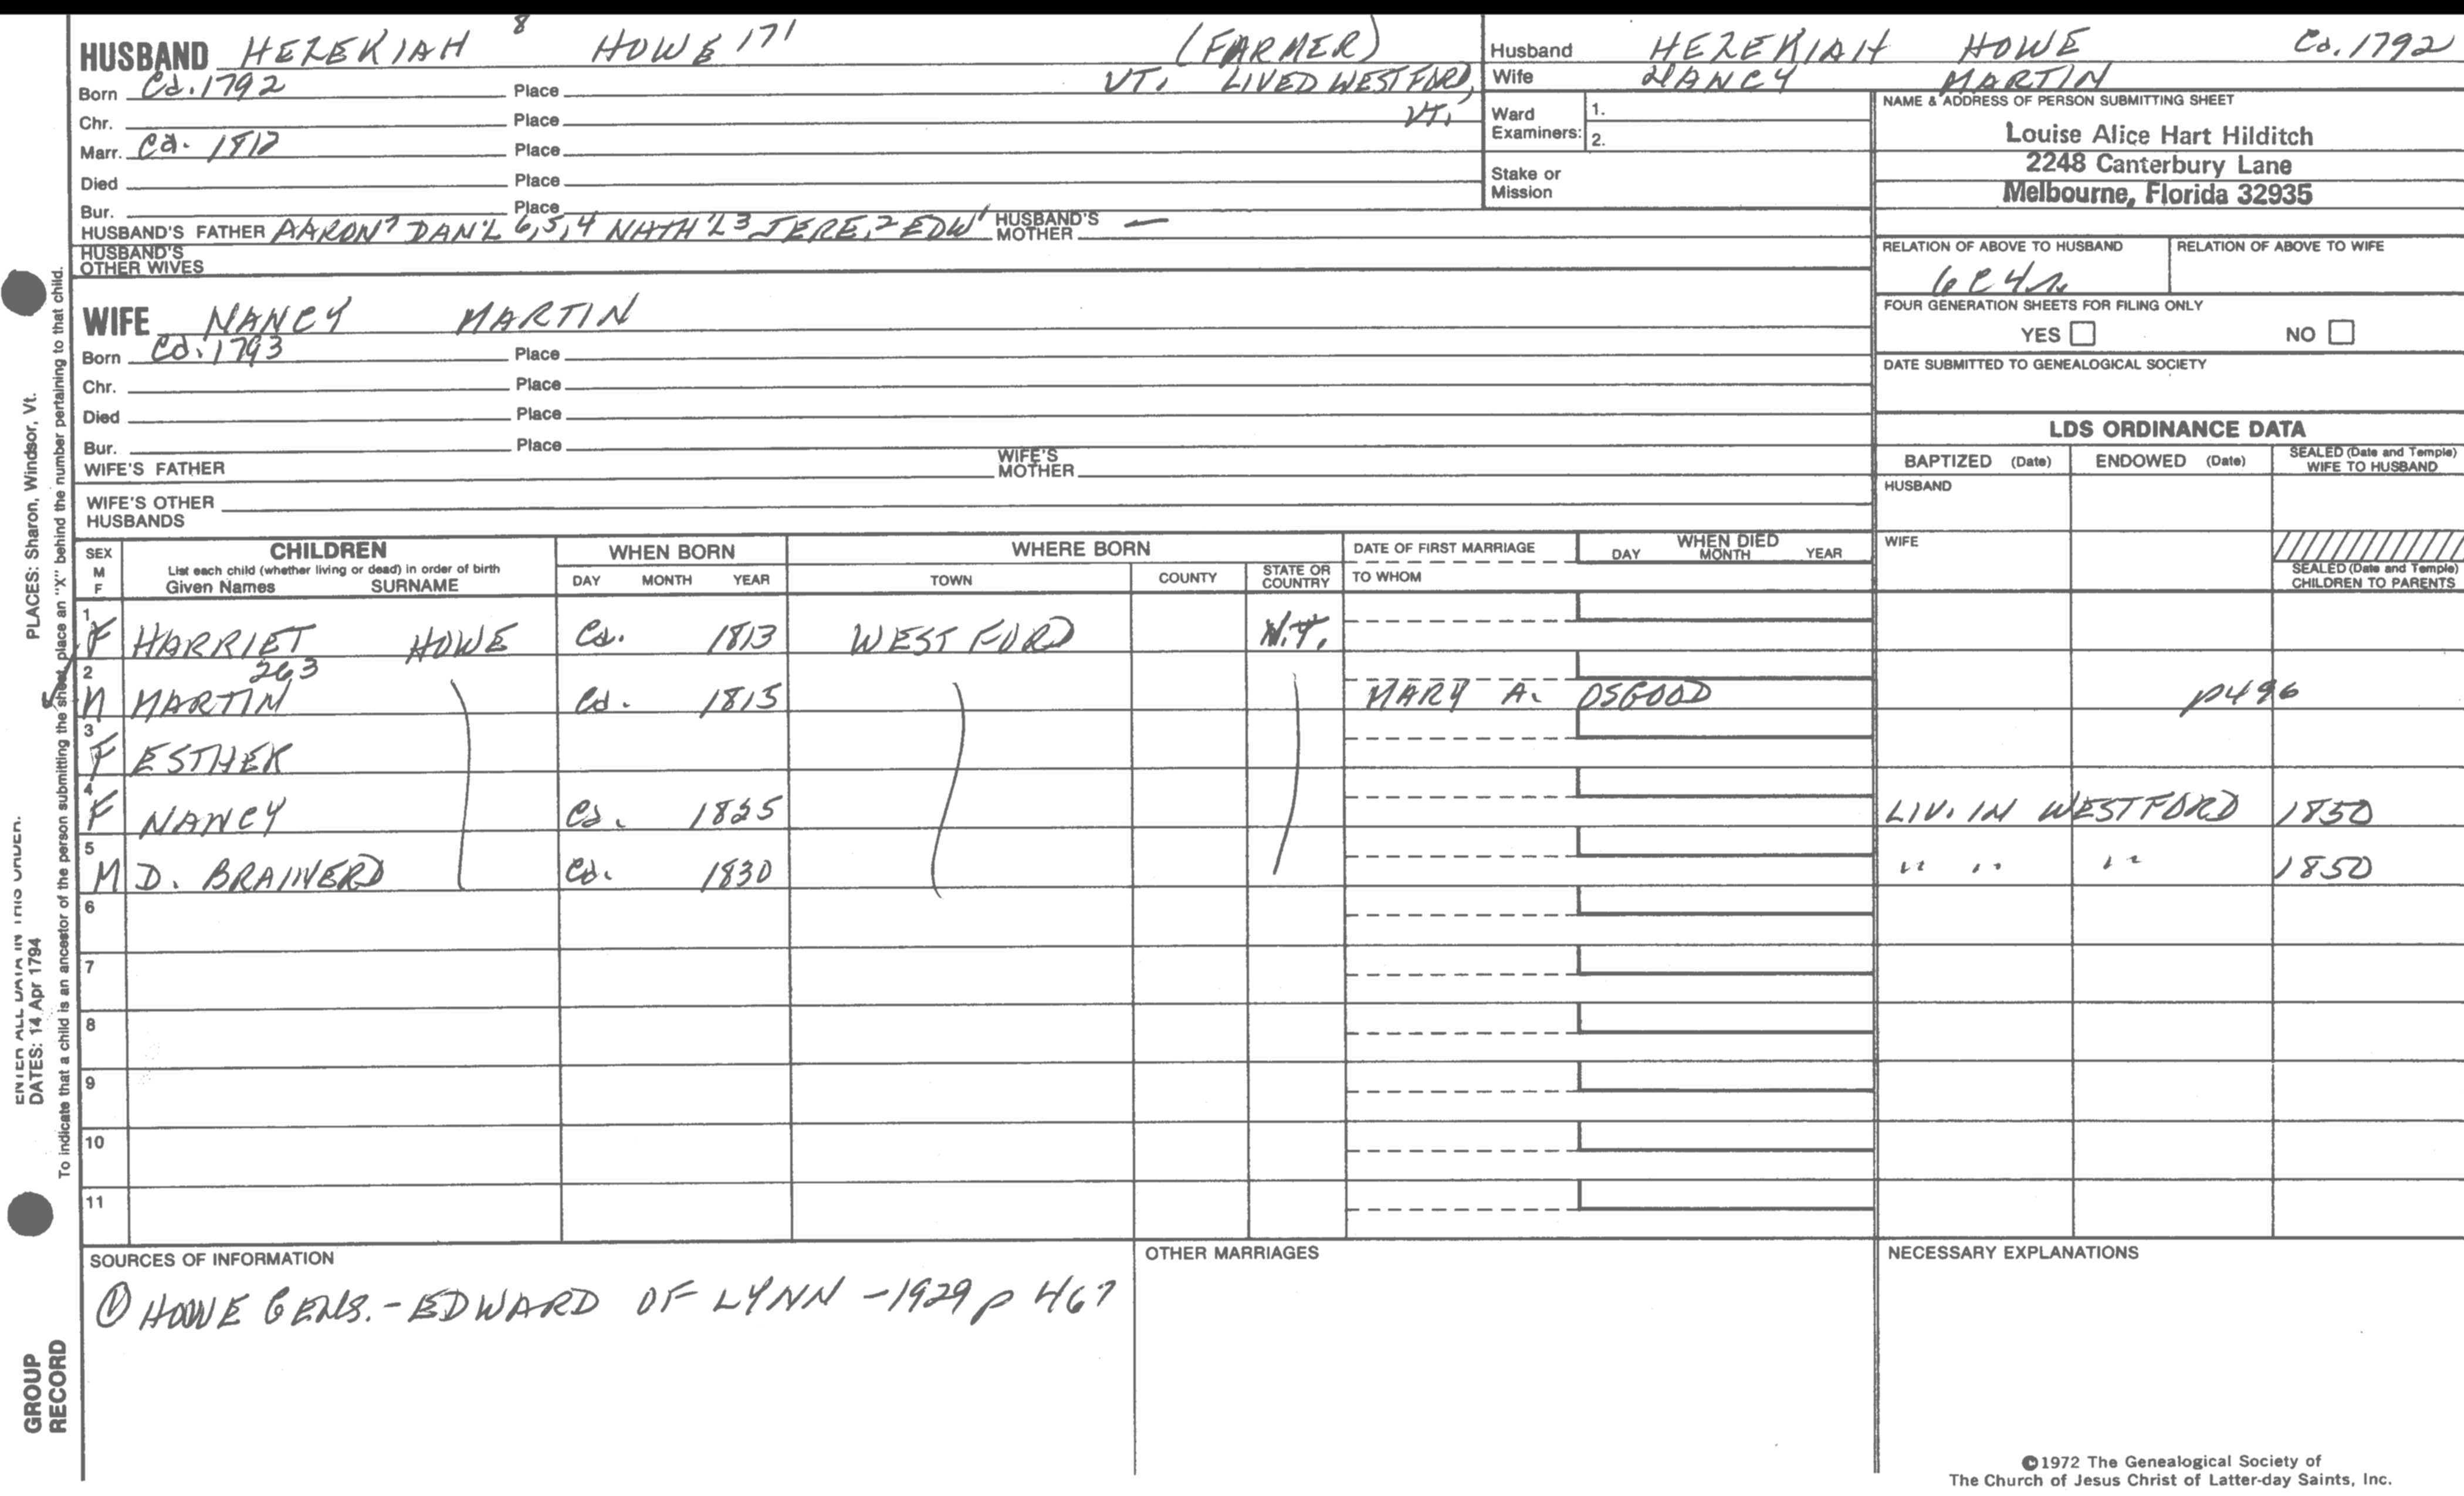 HUSBAND HEZEKIAH 8 HOWE 171 (FARMER)
Born Ca. 1792 Place VT. LIVED WESTFORD,
Chr. Place VT.
Marr. Ca. 1812 Place
Died Place
Bur. Place
HUSBAND'S FATHER AARON7 DAN'L 6,5,4 NATH'L3 JERE,2 EDW1 HUSBAND'S MOTHER —
HUSBAND'S OTHER WIVES
WIFE NANCY MARTIN
Born Ca. 1793 Place
Chr. Place
Died Place
Bur. Place
WIFE'S FATHER WIFE'S MOTHER
WIFE'S OTHER HUSBANDS
Husband HEZEKIAH HOWE Ca. 1792
Wife NANCY MARTIN
Ward Examiners: 1.
2.
Stake or Mission
NAME & ADDRESS OF PERSON SUBMITTING SHEET
Louise Alice Hart Hilditch
2248 Canterbury Lane
Melbourne, Florida 32935
RELATION OF ABOVE TO HUSBAND RELATION OF ABOVE TO WIFE
6C4r
FOUR GENERATION SHEETS FOR FILING ONLY
YES NO
DATE SUBMITTED TO GENEALOGICAL SOCIETY
LDS ORDINANCE DATA
BAPTIZED (Date) ENDOWED (Date) SEALED (Date and Temple) WIFE TO HUSBAND
HUSBAND
WIFE
SEALED (Date and Temple) CHILDREN TO PARENTS
SEX M F
CHILDREN
List each child (whether living or dead) in order of birth
Given Names SURNAME
WHEN BORN
DAY MONTH YEAR
WHERE BORN
TOWN COUNTY STATE OR COUNTRY
DATE OF FIRST MARRIAGE
TO WHOM
WHEN DIED
DAY MONTH YEAR
1 F HARRIET HOWE Ca. 1813 WESTFORD
263
2 M MARTIN Ca. 1815 MARY A. OSGOOD p496
3 F ESTHER
4 F NANCY Ca. 1825 LIV. IN WESTFORD 1850
5 M D. BRAINERD Ca. 1830 " " " 1850
6
7
8
9
10
11
SOURCES OF INFORMATION
① HOWE GENS. - EDWARD OF LYNN - 1929 p 467
OTHER MARRIAGES
NECESSARY EXPLANATIONS
©1972 The Genealogical Society of
The Church of Jesus Christ of Latter-day Saints, Inc.
PLACES: Sharon, Windsor, Vt.
ENTER ALL DATA IN THIS ORDER:
DATES: 14 Apr 1794
To indicate that a child is an ancestor of the person submitting the sheet, place an "X" behind the number pertaining to that child.
GROUP
RECORD